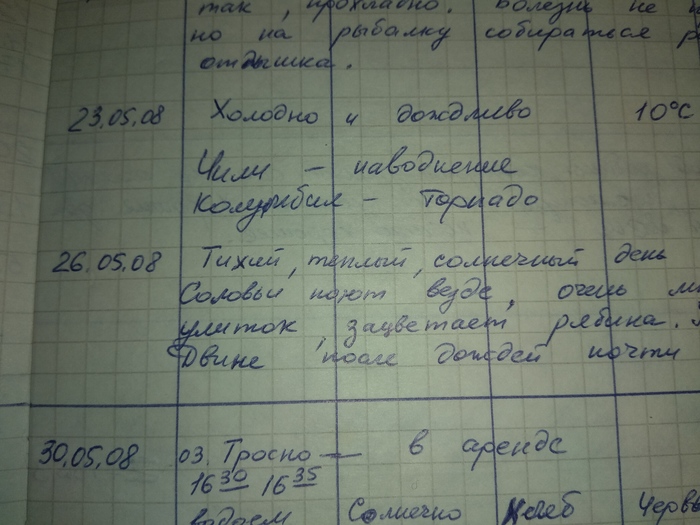 так, прохладно. Болезнь не
но на рыбалку собираться
отдышка.
23.05.08 Холодно и дождливо 10°C
Чили — наводнение
Колумбия — торнадо
26.05.08 Тихий, теплый, солнечный день
Соловьи поют везде, очень
улиток, зацветает рябина.
Двине после дождей почти
30.05.08 оз. Тросно — в аренде
16 30 16 35
водоем Солнечно Хлеб Червь